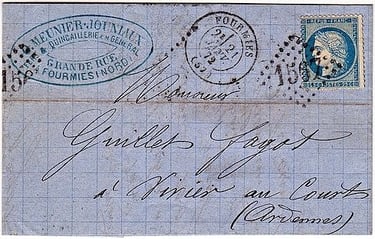 MEUNIER-JOUNIAUX
QUINCAILLERIE EN GÉNÉRAL
GRANDE RUE
FOURMIES (NORD)
FOURMIES
2E
21
(57)
158
REPUB. FRANC.
Monsieur
Guillet Fagot
à Vivier au Court
(Ardennes)